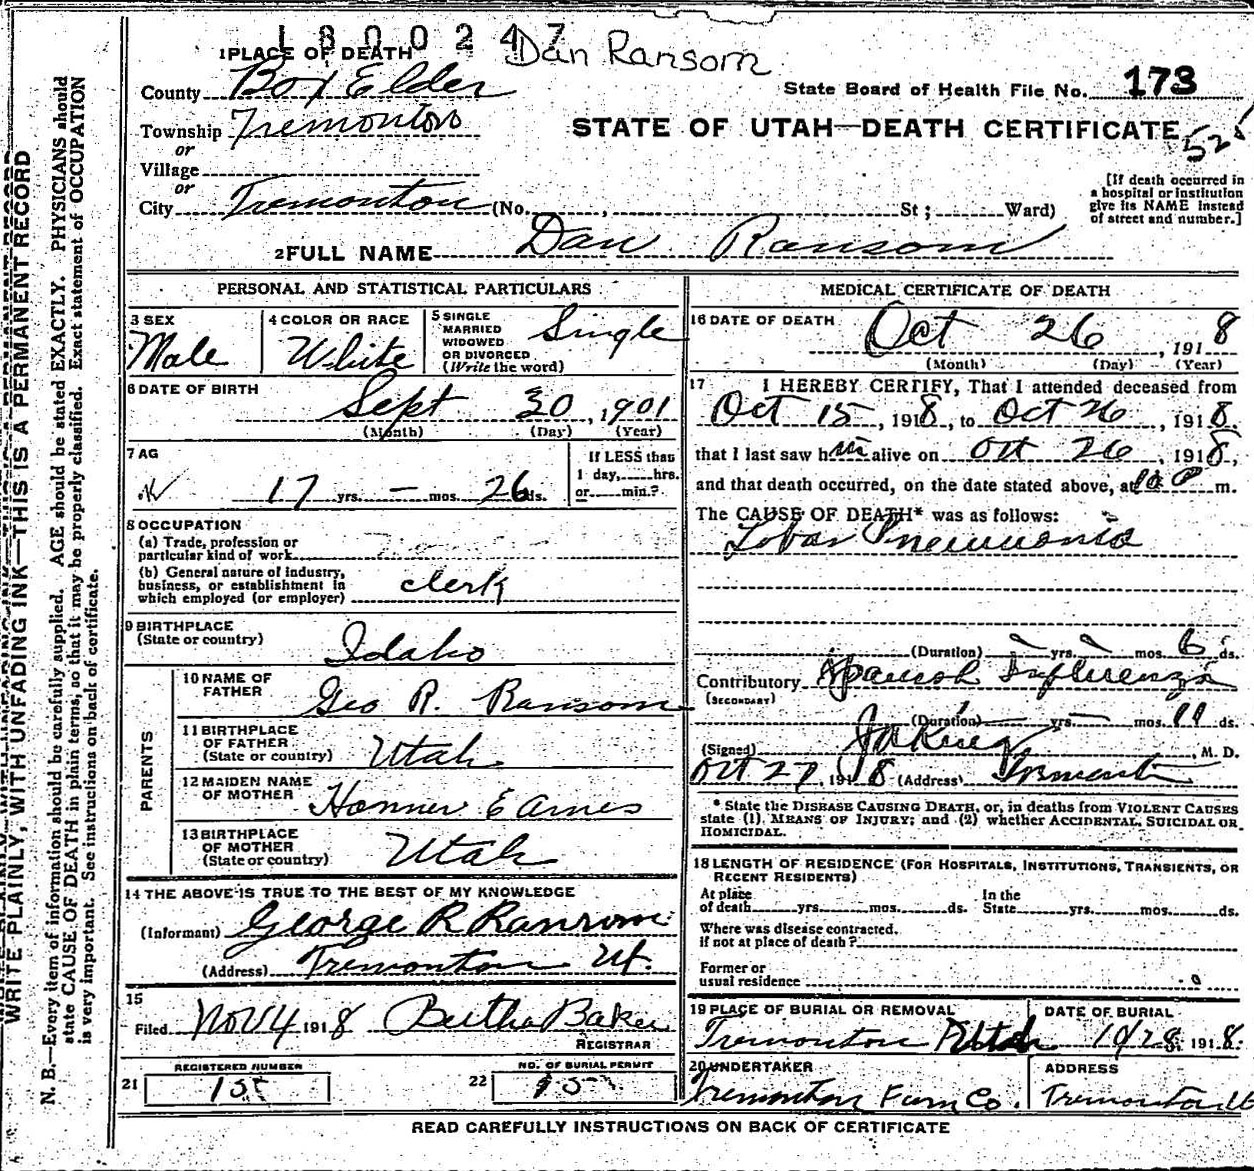 1800247
Dan Ransom
1 PLACE OF DEATH
County Box Elder
State Board of Health File No. 173
Township Tremonton
STATE OF UTAH—DEATH CERTIFICATE
52
or
Village
or
City Tremonton (No. , St; Ward)
[If death occurred in
a hospital or institution
give its NAME instead
of street and number.]
2 FULL NAME Dan Ransom
PERSONAL AND STATISTICAL PARTICULARS
3 SEX
Male
4 COLOR OR RACE
White
5 SINGLE
MARRIED
WIDOWED
OR DIVORCED
(Write the word)
Single
6 DATE OF BIRTH
Sept 30, 1901
(Month) (Day) (Year)
7 AG
17 yrs. — mos. 26 ds.
If LESS than
1 day, hrs.
or min.?
8 OCCUPATION
(a) Trade, profession or
particular kind of work
(b) General nature of industry,
business, or establishment in
which employed (or employer) clerk
9 BIRTHPLACE
(State or country)
Idaho
PARENTS
10 NAME OF
FATHER
Geo R. Ransom
11 BIRTHPLACE
OF FATHER
(State or country)
Utah
12 MAIDEN NAME
OF MOTHER
Honner E Ames
13 BIRTHPLACE
OF MOTHER
(State or country)
Utah
14 THE ABOVE IS TRUE TO THE BEST OF MY KNOWLEDGE
(Informant) George R Ransom
(Address) Tremonton Ut.
15
Filed Nov 4 1918 Bertha Baker
REGISTRAR
REGISTERED NUMBER
21
NO. OF BURIAL PERMIT
22
MEDICAL CERTIFICATE OF DEATH
16 DATE OF DEATH
Oct 26, 1918
(Month) (Day) (Year)
17 I HEREBY CERTIFY, That I attended deceased from
Oct 15, 1918, to Oct 26, 1918.
that I last saw him alive on Oct 26, 1918,
and that death occurred, on the date stated above, at 10 P m.
The CAUSE OF DEATH* was as follows:
Lobar Pneumonia
(Duration) yrs. mos. 6 ds.
Contributory Spanish Influenza
(SECONDARY)
(Duration) — yrs. — mos. 11 ds.
(Signed) , M. D.
Oct 27, 1918 (Address) Tremonton
* State the DISEASE CAUSING DEATH, or, in deaths from VIOLENT CAUSES
state (1) MEANS OF INJURY; and (2) whether ACCIDENTAL, SUICIDAL OR
HOMICIDAL.
18 LENGTH OF RESIDENCE (FOR HOSPITALS, INSTITUTIONS, TRANSIENTS, OR
RECENT RESIDENTS)
At place
of death yrs. mos. ds.
In the
State yrs. mos. ds.
Where was disease contracted,
if not at place of death?
Former or
usual residence
19 PLACE OF BURIAL OR REMOVAL
Tremonton Utah
DATE OF BURIAL
10/28 1918.
20 UNDERTAKER
Tremonton Furn Co.
ADDRESS
Tremonton Ut
READ CAREFULLY INSTRUCTIONS ON BACK OF CERTIFICATE
WRITE PLAINLY, WITH UNFADING INK—THIS IS A PERMANENT RECORD
N. B.—Every item of information should be carefully supplied. AGE should be stated EXACTLY. PHYSICIANS should
state CAUSE OF DEATH in plain terms, so that it may be properly classified. Exact statement of OCCUPATION
is very important. See instructions on back of certificate.